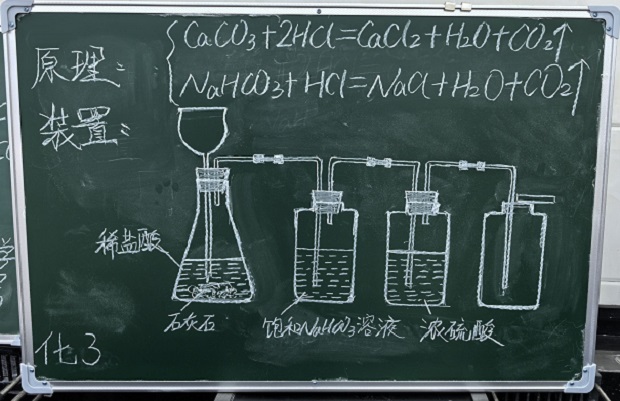 原理：
CaCO₃+2HCl=CaCl₂+H₂O+CO₂↑
NaHCO₃+HCl=NaCl+H₂O+CO₂↑
装置：
稀盐酸
石灰石
饱和NaHCO₃溶液
浓硫酸
化3
学